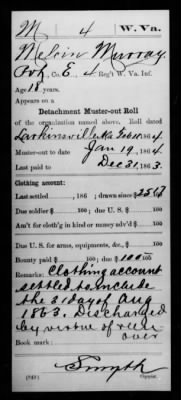 M 4 W. Va.
Melvin Murray
Pvt., Co. E, 4 Reg't W. Va. Inf.
Age 18 years.
Appears on a
Detachment Muster-out Roll
of the organization named above. Roll dated
Larkinsville Ala Feb 10, 1864.
Muster-out to date Jan 19, 1864.
Last paid to Dec 31, 1863.
Clothing account:
Last settled , 186 ; drawn since $ 25
Due soldier $ 100; due U. S. $ 100
Am't for cloth'g in kind or money adv'd $ 100
Due U. S. for arms, equipments, &c., $ 100
Bounty paid $ 100; due $ 100
Remarks: Clothing account
settled to include
the 31 day of Aug
1863. Discharged
by virtue of reen
over
Book mark:
Smyth
Copyist.